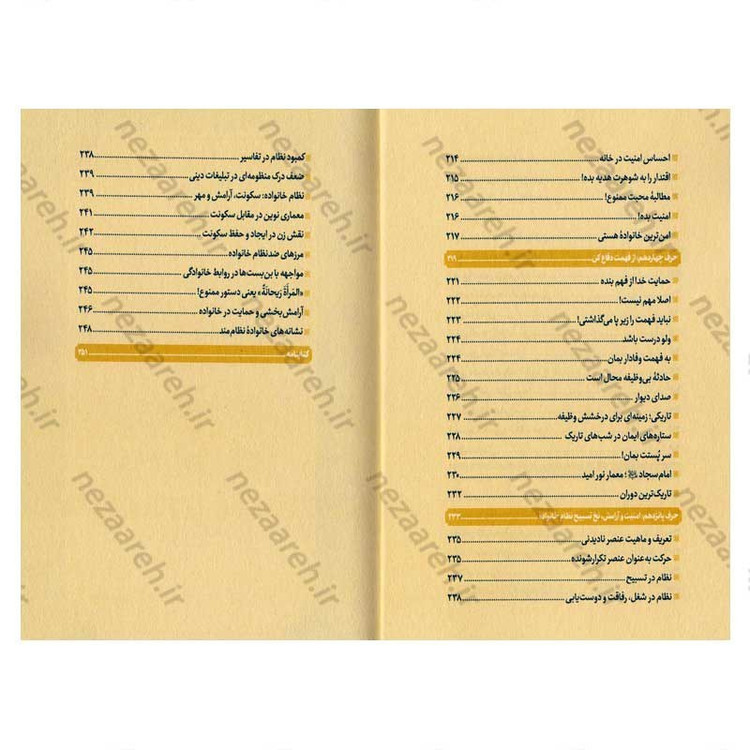 احساس امنیت در خانه ........ ۲۱۴
اقتدار را به شوهرت هدیه بده! ........ ۲۱۵
مطالبهٔ محبت ممنوع! ........ ۲۱۶
امنیت بده! ........ ۲۱۶
امن‌ترین خانوادهٔ هستی ........ ۲۱۷
حرف چهاردهم: از فهمت دفاع کن ........ ۲۱۹
حمایت خدا از فهم بنده ........ ۲۲۱
اصلا مهم نیست! ........ ۲۲۲
نباید فهمت را زیر پا می‌گذاشتی! ........ ۲۲۳
ولو درست باشد ........ ۲۲۴
به فهمت وفادار بمان ........ ۲۲۴
حادثهٔ بی‌وظیفه محال است ........ ۲۲۵
صدای دیوار ........ ۲۲۶
تاریکی؛ زمینه‌ای برای درخشش وظیفه ........ ۲۲۷
ستاره‌های ایمان در شب‌های تاریک ........ ۲۲۸
سر پُستت بمان! ........ ۲۲۹
امام سجاد؛ معمار نور امید ........ ۲۳۰
تاریک‌ترین دوران ........ ۲۳۲
حرف پانزدهم: امنیت و آرامش، نخ تسبیح نظام خانواده ........ ۲۳۳
تعریف و ماهیت عنصر نادیدنی ........ ۲۳۵
حرکت به‌عنوان عنصر تکرارشونده ........ ۲۳۵
نظام در تسبیح ........ ۲۳۷
نظام در شغل، رفاقت و دوست‌یابی ........ ۲۳۸
کمبود نظام در تفاسیر ........ ۲۳۸
ضعف درک منظومه‌ای در تبلیغات دینی ........ ۲۳۹
نظام خانواده: سکونت، آرامش و مهر ........ ۲۳۹
معماری نوین در مقابل سکونت ........ ۲۴۱
نقش زن در ایجاد و حفظ سکونت ........ ۲۴۲
مرزهای ضدنظام خانواده ........ ۲۴۵
مواجهه با بن‌بست‌ها در روابط خانوادگی ........ ۲۴۵
«المَرأَةُ رَیحانَةٌ» یعنی دستور ممنوع! ........ ۲۴۵
آرامش‌بخشی و حمایت در خانواده ........ ۲۴۶
نشانه‌های خانوادهٔ نظام‌مند ........ ۲۴۸
کتابنامه ........ ۲۵۱
nezaareh.ir